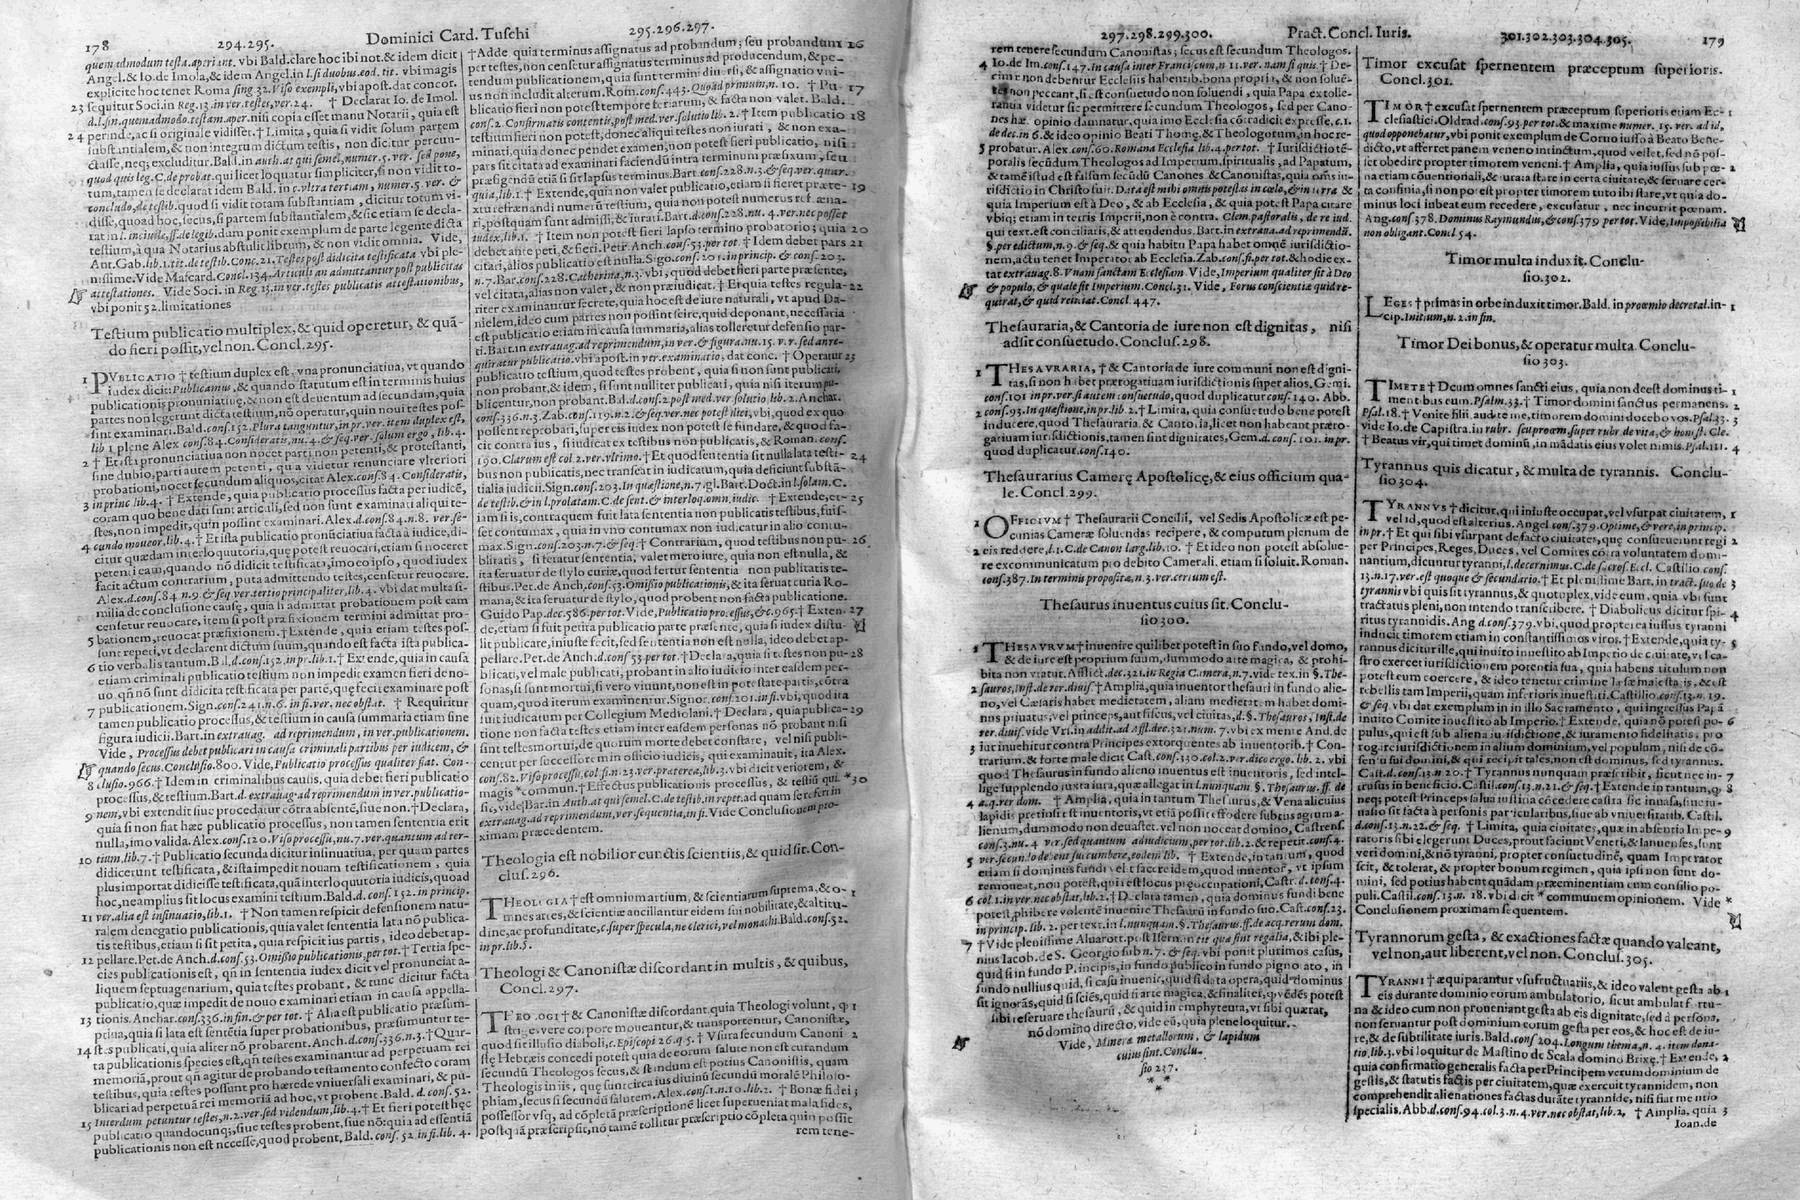 178
294.295.
Dominici Card. Tuschi
295.296.297.
quem admodum testa. aperi ant. vbi Bald. clare hoc ibi not. & idem dicit
Angel. & Io. de Imola, & idem Angel. in l. si duobus eod. tit. vbi magis
explicite hoc tenet Roma sing 32. Viso exempli, vbi apost. dat concor.
23 sequitur Soci. in Reg. 13. in ver. testes, ver. 24. † Declarat Io. de Imol.
d. l. sin. quemadmodo. testam. aper. nisi copia esset manu Notarii, quia est
24 perinde, ac si originale vidisset. † Limita, quia si vidit solum partem
substantialem, & non integrum dictum testis, non dicitur percun-
ctasse, neq; excluditur. Bald. in auth. at qui semel, numer. 5. ver. sed pone,
quod quis leg. C. de probat. qui licet loquatur simpliciter, si non vidit to-
tum, tamen se declarat idem Bald. in c. vltra tertiam, numer. 5. ver. &
concludo, de testib. quod si vidit totam substantiam, dicitur totum vi-
disse, quoad hoc, secus, si partem substantialem, & sic etiam se decla-
rat in l. inciuile, ff. de legib. dam ponit exemplum de parte legente dicta
testium, a qua Notarius abstulit librum, & non vidit omnia. Vide,
Ant. Gab. lib. 1. tit. de testib. Conc. 21. Testes post didicita testificata vbi ple-
nissime. Vide Mascard. Concl. 134. Articuli an admittantur post publicatas
attestationes. Vide Soci in Reg. 13. in ver. testes publicatis attestationibus,
vbi ponit 52. limitationes
Testium publicatio multiplex, & quid operetur, & quã-
do fieri possit, vel non. Concl. 295.
1 PVBLICATIO † testium duplex est, vna pronunciatiua, vt quando
iudex dicit: Publicamus, & quando statutum est in terminis huius
publicationis pronunciatiuę, & non est deuentum ad secundam, quia
partes non legerunt dicta testium, nõ operatur, quin noui testes pos-
sint examinari. Bald. conf. 152. Plura tanguntur, in pr. ver. item duplex est,
lib 1. plene Alex conf. 84. Consideratis, nu. 4. & seq. ver. solum ergo, lib. 4.
2 † Et ista pronunciatiua non nocet parti non petenti, & protestanti,
sine dubio, parti autem petenti, quia videtur renunciare vlteriori
probationi, nocet secundum aliquos, citat Alex. conf. 84. Consideratis,
3 in princ lib. 4. † Extende, quia publicatio processus facta per iudicẽ,
coram quo bene dati sunt articuli, sed non sunt examinati aliqui te-
stes, non impedit, quin possint examinari. Alex. d. conf. 84. n. 8. ver. se-
4 cundo moueor, lib. 4. † Et ista publicatio pronũciatiua facta à iudice, di-
citur quædam interloquutoria, que potest reuocari, etiam si noceret
petenti eam, quando nõ didicit testificata, imo eo ipso, quod iudex
facit actum contrarium, puta admittendo testes, censetur reuocare.
Alex. d. conf. 84 n. 9. & seq ver tertio principaliter, lib. 4. vbi dat multa si-
milia de conclusione causę, quia admittat probationem post eam
censetur reuocare, item si post præfixionem termini admittat pro-
5 bationem, reuocat præfixionem. † Extende, quia etiam testes pos-
sunt repeti, vt declarent dictum suum, quando est facta ista publica-
6 tio verbalis tantum. Bal. d. conf. 152. in pr. lib. 1. † Extende, quia in causa
etiam criminali publicatio testium non impedit examen fieri de no-
uo, qñ nõ sunt didicita testificata per parte, que feci examinare post
7 publicationem. Sign. conf. 241. n. 6. in fi. ver. nec obstat. † Requiritur
tamen publicatio processus, & testium in causa summaria etiam sine
figura iudicii. Bart. in extrauag. ad reprimendum, in ver. publicationem.
Vide, Processus debet publicari in causa criminali partibus per iudicem, &
quando secus. Conclusio. 800. Vide, Publicatio processus qualiter fiat. Con-
8 clusio. 966. † Idem in criminalibus causis, quia debet fieri publicatio
processus, & testium. Bart. d. extrauag. ad reprimendum in ver. publicatio-
9 nem, vbi extendit siue procedatur cõtra absentẽ, siue non. † Declara,
quia si non fiat hæc publicatio processus, non tamen sententia erit
nulla, imo valida. Alex. conf. 120. Viso processu, nu. 7. ver. quantum ad ter-
10 tium, lib. 7. † Publicatio secunda dicitur insinuatiua, per quam partes
didicerunt testificata, & ista impedit nouam testificationem, quia
plus importat didicisse testificata, quã interloquutoria iudicis, quoad
hoc, ne amplius sit locus examini testium. Bald. d. conf. 152. in princip.
11 ver. alia est insinuatio, lib. 1. † Non tamen respicit defensionem natu-
ralem denegatio publicationis, quia valet sententia lata nõ publica-
tis testibus, etiam si sit petita, quia respicit ius partis, ideo debet ap-
12 pellare. Pet. de Anch. d. conf. 53. Omissio publicationis, per tot. † Tertia spe-
cies publicationis est, qñ in sententia iudex dicit vel pronunciat a-
liquem septuagenarium, quia testes probant, & tunc dicitur facta
publicatio, quæ impedit de nouo examinari etiam in causa appella-
13 tionis. Anchar. conf. 336. in fin. & per tot. † Alia est publicatio præsum-
ptiua, quia si lata est sentẽtia super probationibus, præsumuntur te-
14 stes publicati, quia aliter nõ probarent. Anch. d. conf. 336. n. 3. † Quar-
ta publicationis species est, qñ testes examinantur ad perpetuam rei
memoriã, prout qñ agitur de probando testamento confecto coram
testibus, quia testes possunt pro hærede vniuersali examinari, & pu-
blicari ad perpetuã rei memoriã ad hoc, vt probent. Bald. d. conf. 52.
15 Interdum petuntur testes, n. 2. ver. sed videndum, lib. 4. † Et fieri potest hęc
publicatio quandocunq; siue testes probent, siue nõ: quia ad essentiã
publicationis non est necesse, quod probent. Bald. conf. 52. in fi. lib. 4.
† Adde, quia terminus assignatus ad probandum, seu probandum 16
per testes, non censetur assignatus terminus ad producendum, & pe-
tendum publicationem, quia sunt termini diuersi, & assignatio vni-
us non includit alterum. Rom. conf. 443. Quoad primum, n. 10. † Pu- 17
blicatio fieri non potest tempore feriarum, & facta non valet. Bald.
conf. 2. Confirmatis contentis, post med. ver. solutio lib. 2. † Item publicatio 18
testium fieri non potest, donec aliqui testes non iurati, & non exa-
minati. quia donec pendet examen, non potest fieri publicatio, nisi
pars sit citata ad examinari faciendũ intra terminum præfixum, seu
præfigendũ etiã si sit lapsus terminus. Bart. conf. 228. n. 3. & seq. ver. quar.
quia, lib. 1. † Extende, quia non valet publicatio, etiam si fieret præte- 19
xtu refrænandi numerũ testium, quia non potest numerus refræna-
ri, postquam sunt admissi, & iurati. Bart. d. conf. 228. nu. 4. ver. nec posset
iudex, lib. 1. † Item non potest fieri lapso termino probatorio; quia 20
debet ante peti, & fieri. Petr. Anch. conf. 53. per tot. † Idem debet pars 21
citari, alios publicatio est nulla. Sign. conf. 201. in princip. & conf. 203.
n. 7. Bar. conf. 228. Catherina, n. 3. vbi, quod debet fieri parte præsente,
vel citata, alias non valet, & non præiudicat. † Er quia testes regula- 22
riter examinantur secrete, quia hoc est de iure naturali, vt apud Da-
nielem, ideo cum partes non possint scire, quid deponant, necessaria
est publicatio etiam in causa summaria, alias tolleretur defensio par-
ti. Bart. in extrauag. ad reprimendum, in ver. & figura. nu. 15. v. r. sed an re-
quiratur publicatio. vbi apost. in ver. examinatio, dat conc. † Operatur 23
publicatio testium, quod testes probent, quia si non sunt publicati,
non probant, & idem, si sunt nulliter publicati, quia nisi iterum pu-
blicentur, non probant. Bal. d. conf. 2 post med ver. solutio lib. 2. Anchar.
conf. 336. n. 3. Zab. conf. 119. n. 2. & seq. ver. nec potest dici, vbi, quod ex quo
possent reprobari, super eis iudex non potest se fundare, & quod fa-
cit contra ius, si iudicat ex testibus non publicatis, & Roman. conf.
190. Clarum est col 2. ver. vltimo. † Et quod sententia sit nulla lata testi- 24
bus non publicatis, nec transeat in iudicatum, quia deficiunt substã-
tialia iudicii. Sign. conf. 203. In quæstione, n. 7. gl. Bart. Doct. in l. solam. C.
de testib. & in l. prolatam. C. de sent. & interloq. omn. iudic. † Extende, et- 25
iam si is, contra quem fuit lata sententia non publicatis testibus, fuis-
set contumax, quia in vno contumax non iudicatur in alio contu-
max. Sign. conf. 203. n. 7. & seq. † Contrarium, quod testibus non pu- 26
blicatis, si feratur sententia, valet mero iure, quia non est nulla, &
ita seruatur de stylo curiæ, quod fertur sententia non publicatis te-
stibus. Pet. de Anch. conf. 53. Omissio publicationis, & ita seruat curia Ro-
mana, & ita seruatur de stylo, quod probent non facta publicatione.
Guido Pap. dec. 586. per tot. Vide, Publicatio processus, &c. 965. † Exten- 27
de, etiam si fuit petita publicatio parte præsente, quia si iudex distu-
lit publicare, iniuste fecit, sed sententia non est nulla, ideo debet ap-
pellare. Pet. de Anch. d. conf 53 per tot. † Declara, quia si testes non pu- 28
blicati, vel male publicati; probant in alio iudicio inter easdem per-
sonas, si sunt mortui, si vero viuunt, non est in potestate partis, cõtra
quam, quod iterum examinentur. Signor. conf. 201. in fi. vbi, quod ita
fuit iudicatum per Collegium Mediolani. † Declara, quia publica- 29
tione non facta testes etiam inter easdem personas nõ probant nisi
sint testes mortui, de quorum morte debet constare, vel nisi publi-
centur per successorem in officio iudicis, qui examinauit, ita Alex.
conf. 82. Viso processu, col. fi. n. 23. ver. præterea, lib. 3. vbi dicit veriorem, &
magis * commun. † Effectus publicationis processus, & testiũ qui * 30
sit, vide Bar. in Auth. at qui semel. C. de testib. in repet. ad quam se refert in
extrauag. ad reprimendum, ver. sequentia, in fi. Vide Conclusionem pro-
ximam præcedentem.
Theologia est nobilior cunctis scientiis, & quid sit. Con-
clus. 296.
THEOLOGIA † est omnium artium, & scientiarum suprema, & o- 1
mnes artes, & scientiæ ancillantur eidem sui nobilitate, & altitu-
dine, ac profunditate, c. super specula, ne clerici, vel monachi. Bald. conf. 52.
in pr. lib. 5.
Theologi & Canonistæ discordant in multis, & quibus,
Concl. 297.
THEOLOGI † & Canonistæ discordant quia Theologi volunt, q 1
striges vere corpore moueantur, & transportentur, Canonistæ,
quod sit illusio diaboli, c. Episcopi 26. q 5. † Vsura secundum Canoni 2
stę Hebræis concedi potest quia de eorum salute non est curandum
secundũ Theologos secus, & standum est potius Canonistis, quam
Theologis in iis, quę sunt circa ius diuinũ secundũ morale Philoso-
phiam, secus si secundũ salutem. Alex. conf. 1. n. 10. lib. 2. † Bonæ fidei 3
possessor vsq; ad cõpletã præscriptionẽ licet superueniat mala fides,
postquã præscripsit, nõ tamẽ tollitur præscriptio cõpleta quin possit
rem tene-
297.298.299.300.
Pract. Concl. Iuris.
301.302.303.304.305.
179
rem tenere secundum Canonistas; secus est secundum Theologos.
4 Io. de Im. conf. 147. In causa inter Franciscum, n 11. ver. nam si quis. † De-
cimæ non debentur Ecclesiis habentib. bona propria, & non soluẽ-
tes non peccant, si est consuetudo non soluendi, quia Papa ex tolle-
rantia videtur sic permittere secundum Theologos, sed per Cano-
nes hæc opinio damnatur, quia imo Ecclesia contradicit expresse, c. 1.
de dec. in 6. & ideo opinio Beati Thomę, & Theologorum, in hoc re-
5 probatur. Alex. conf. 60. Romana Ecclesia lib. 4. per tot. † Iurisdictio tẽ-
poralis secũdum Theologos ad Imperium, spiritualis, ad Papatum,
& tamẽ istud est falsum secũdũ Canones & Canonistas, quia omnis iu-
risdictio in Christo fuit. Data est mihi omnis potestas in cœlo, & in terra &
quia Imperium est à Deo, & ab Ecclesia, & quia potest Papa citare
vbiq; etiam in terris Imperii, non è contra. Clem. pastoralis, de re iud.
qui text. est conciliaris, & attendendus. Bart. in extraua. ad reprimendũ.
§. per edictum, n. 9. & seq. & quia habitu Papa habet omnẽ iurisdictio-
nem, actu tenet Imperator ab Ecclesia. Zab. conf. fi. per tot. & hodie ex-
tat extrauag. 8. Vnam sanctam Ecclesiam. Vide, Imperium qualiter sit à Deo
& populo, & quale sit Imperium. Concl. 31. Vide, Forus conscientiæ quid re-
quirat, & quid reiiciat. Concl. 447.
Thesauraria, & Cantoria de iure non est dignitas, nisi
adsit consuetudo. Conclus. 298.
1 THESAVRARIA, † & Cantoria de iure communi non est digni-
tas, si non habet prærogatiuam iurisdictionis super alios. Gemi.
conf. 101 in pr. ver. si autem consuetudo, quod duplicatur conf. 140. Abb.
2 conf. 93. In quæstione, in pr. lib. 2. † Limita, quia consuetudo bene potest
inducere, quod Thesauraria, & Cantoria, licet non habeant præro-
gatiuam iurisdictionis, tamen sint dignitates, Gem. d. conf. 101. in pr.
quod duplicatur. conf. 140.
Thesaurarius Camerę Apostolicę, & eius officium qua-
le. Concl. 299.
1 OFFICIVM † Thesaurarii Concilii, vel Sedis Apostolicæ est pe-
cunias Cameræ soluendas recipere, & computum plenum de
2 eis reddere, l. 1. C. de Canon larg. lib. 10. † Et ideo non potest absolue-
re excommunicatum pro debito Camerali, etiam si soluit. Roman.
conf. 387. In terminis propositæ, n. 3. ver. certum est.
Thesaurus inuentus cuius sit. Conclu-
sio 300.
1 THESAVRVM † inuenire quilibet potest in suo fundo, vel domo,
& de iure est proprium suum, dummodo arte magica, & prohi-
bita non vtatur. Afflict. dec. 321. in Regia Camera, n. 7. vide tex. in §. The-
2 sauros, Inst. de rer. diuis. † Amplia, quia inuentor thesauri in fundo alie-
no, vel Cæsaris habet medietatem, aliam medietatem habet domi-
nus priuatus, vel princeps, aut fiscus, vel ciuitas, d. §. Thesauros, Inst. de
rer. diuis. vide Vrs. in addit. ad Affl. dec. 321. num. 7. vbi ex mente And. de
3 iur inuehitur contra Principes extorquentes ab inuentorib. † Con-
trarium. & forte male dicit Cast. conf. 130. col. 2. per. dico ergo. lib. 2. vbi
quod Thesaurus in fundo alieno inuentus est inuentoris, sed intel-
lige supplendo iuxta iura, quæ allegat in l. nunquam. §. Thesaurus. ff de
4 a. q. rer dom. † Amplia, quia in tantum Thesaurus, & Vena alicuius
lapidis pretiosi est inuentoris, vt etiã possit effodere subtus agrum a-
lienum, dummodo non deuastet, vel non noceat domino, Castrens.
conf. 3. nu. 4 ver. sed quantum adiudicium, per tot lib. 2. & repetit. conf. 4.
5 ver. secundo debent succumbere, eodem lib. † Extende, in tantum, quod
etiam si dominus fundi velit facere idem, quod inuentor, vt ipsum
remoueat, non potest, quia est locus præoccupationi, Castr. d. conf. 4.
6 col. 1. in ver. nec obstat, lib. 2. † Declara tamen, quia dominus fundi bene
potest, phibere volentẽ inuenire Thesaurũ in fundo suo. Cast. conf. 23.
in princip. lib. 2. per text. in l. nunquam. §. Thesaurus. ff. de acq. rerum dom.
7 † Vide plenissime Aluarott. post Isern. in tit quæ sint regalia, & ibi ple-
nius Iacob. de S. Georgio sub n. 7. & seq. vbi ponit plurimos casus,
quid si in fundo Principis, in fundo publico in fundo pignorato, in
fundo nullius, quid si casu inuenit, quid si data opera, quid dominus
sit ignorãs, quid si sciẽs, quid si arte magica, & finaliter, q vẽdẽs potest
sibi reseruare thesaurũ, & quid in emphyteuta, vt sibi quærat,
nõ domino directo, vide eũ, quia plene loquitur..
Vide, Mineræ metallorum, & lapidum
cuius sint. Conclu-
sio 237.
* *
*
Timor excusat spernentem præceptum superioris.
Concl. 301.
TIMOR † excusat spernentem præceptum superioris etiam Ec- 1
clesiastici. Oldrad. conf. 93. per tot. & maxime numer. 15. ver. ad id,
quod opponebatur, vbi ponit exemplum de Coruo iusso à Beato Bene-
dicto, vt afferret panem veneno intinctum, quod vellet, sed nõ pos-
set obedire propter timorem veneni. † Amplia, quia iussus sub pœ- 2
na etiam cõuentionali, & iurata stare in certa ciuitate, & seruare cer-
ta confinia, si non potest propter timorem tuto ibi stare, vt quia do-
minus loci iubeat eum recedere, excusatur, nec incurrit pœnam.
Ang. conf. 378. Dominus Raymundus, & conf. 379 per tot. Vide, Impossibilia
non obligant. Concl 54.
Timor multa induxit. Conclu-
sio. 302.
LEGES † primas in orbe induxit timor. Bald. in proœmio decretal. in- 1
cip. Initium, n. 2. in fin.
Timor Dei bonus, & operatur multa. Conclu-
sio 303.
TIMETE † Deum omnes sancti eius, quia non deest dominus ti- 1
mentibus eum. Psalm. 33. † Timor domini sanctus permanens. 2
Psal. 18. † Venite filii, audite me, timorem domini docebo vos. Psal. 33. 3
vide Io. de Capistra. in rubr. seu proœm. super rubr de vita, & honest. Cle.
† Beatus vir, qui timet dominũ, in mãdatis eius volet nimis. Psal. 111. 4
Tyrannus quis dicatur, & multa de tyrannis. Conclu-
sio 304.
TYRANNVS † dicitur, qui iniuste occupat, vel vsurpat ciuitatem, 1
vel id, quod est alterius. Angel conf. 379. Optime, & vere, in princip.
in pr. † Et qui sibi vsurpant de facto ciuitates, quę consueuerunt regi 2
per Principes, Reges, Duces, vel Comites cõtra voluntatem domi-
nantium, dicuntur tyranni, l. decernimus. C. de sacros. Eccl. Castilio conf.
13. n. 17. ver. est quoque & secundario. † Et plenissime Bart. in tract. suo de 3
tyrannis vbi quis sit tyrannus, & quotuplex, vide eum, quia vbi sunt
tractatus pleni, non intendo transcribere. † Diabolicus dicitur spi- 4
ritus tyrannidis. Ang d. conf. 379. vbi, quod propterea iussus tyranni
inducit timorem etiam in constantissimos viros. † Extende, quia ty- 5
rannus dicitur ille, qui inuito inuestito ab Imperio de ciuitate, vel ca-
stro exercet iurisdictionem potentia sua, quia habens titulum non
potest eum coercere, & ideo tenetur crimine læsæ maiestatis, & est
rebellis tam Imperii, quam inferioris inuestiti. Castillio. conf. 13. n. 19.
& seq. vbi dat exemplum in in illo Sacramento, qui ingressus Papiã
inuito Comite inuestito ab Imperio. † Extende, quia nõ potest po- 6
pulus, qui est sub aliena iurisdictione, & iuramento fidelitatis, pro
rogare iurisdictionem in alium dominium, vel populum, nisi de cõ-
sensu sui domini, & qui recipit tales, non est dominus, sed tyrannus.
Cast. d. conf. 13. n 20. † Tyrannus nunquam præscribit, sicut nec in- 7
trusus in beneficio. Castil. conf. 13. n. 21. & seq. † Extende in tantum, q 8
neq; potest Princeps salua iustitia cõcedere castra sic inuasa, siue iu-
uasio sit facta à personis particularibus, siue ab vniuersitatib. Castil.
d. conf. 13. n. 22. & seq. † Limita, quia ciuitates, quæ in absentia Impe- 9
ratoris sibi elegerunt Duces, prout faciunt Veneti, & Ianuenses, sunt
veri domini, & nõ tyranni, propter consuetudinẽ, quam Imperator
scit, & tolerat, & propter bonum regimen, quia ipsi non sunt do-
mini, sed potius habent quãdam præeminentiam cum consilio po-
puli. Castil. conf. 13. n. 18. vbi dicit * communem opinionem. Vide *
Conclusionem proximam sequentem.
Tyrannorum gesta, & exactiones factæ quando valeant,
vel non, aut liberent, vel non. Conclus. 305.
TYRANNI † æquiparantur vsufructuariis, & ideo valent gesta ab 1
eis durante dominio eorum ambulatorio, sicut ambulat fortu-
na & ideo cum non proueniant gesta ab eis dignitate, sed à persona,
non seruantur post dominium eorum gesta per eos, & hoc est de iu-
re, & de subtilitate iuris. Bald. conf 204. Longum thema, n. 4. item dona-
tio, lib. 3. vbi loquitur de Mastino de Scala domino Brixę. † Extende, 2
quia confirmatio generalis facta per Principem verum dominium de
gestis, & statutis factis per ciuitatem, quæ exercuit tyrannidem, non
comprehendit alienationes factas durãte tyrannide, nisi fiat mentio
specialis. Abb. d. conf. 94. col. 3. n. 4. ver. nec obstat, lib. 2. † Amplia, quia 3
Ioan. de